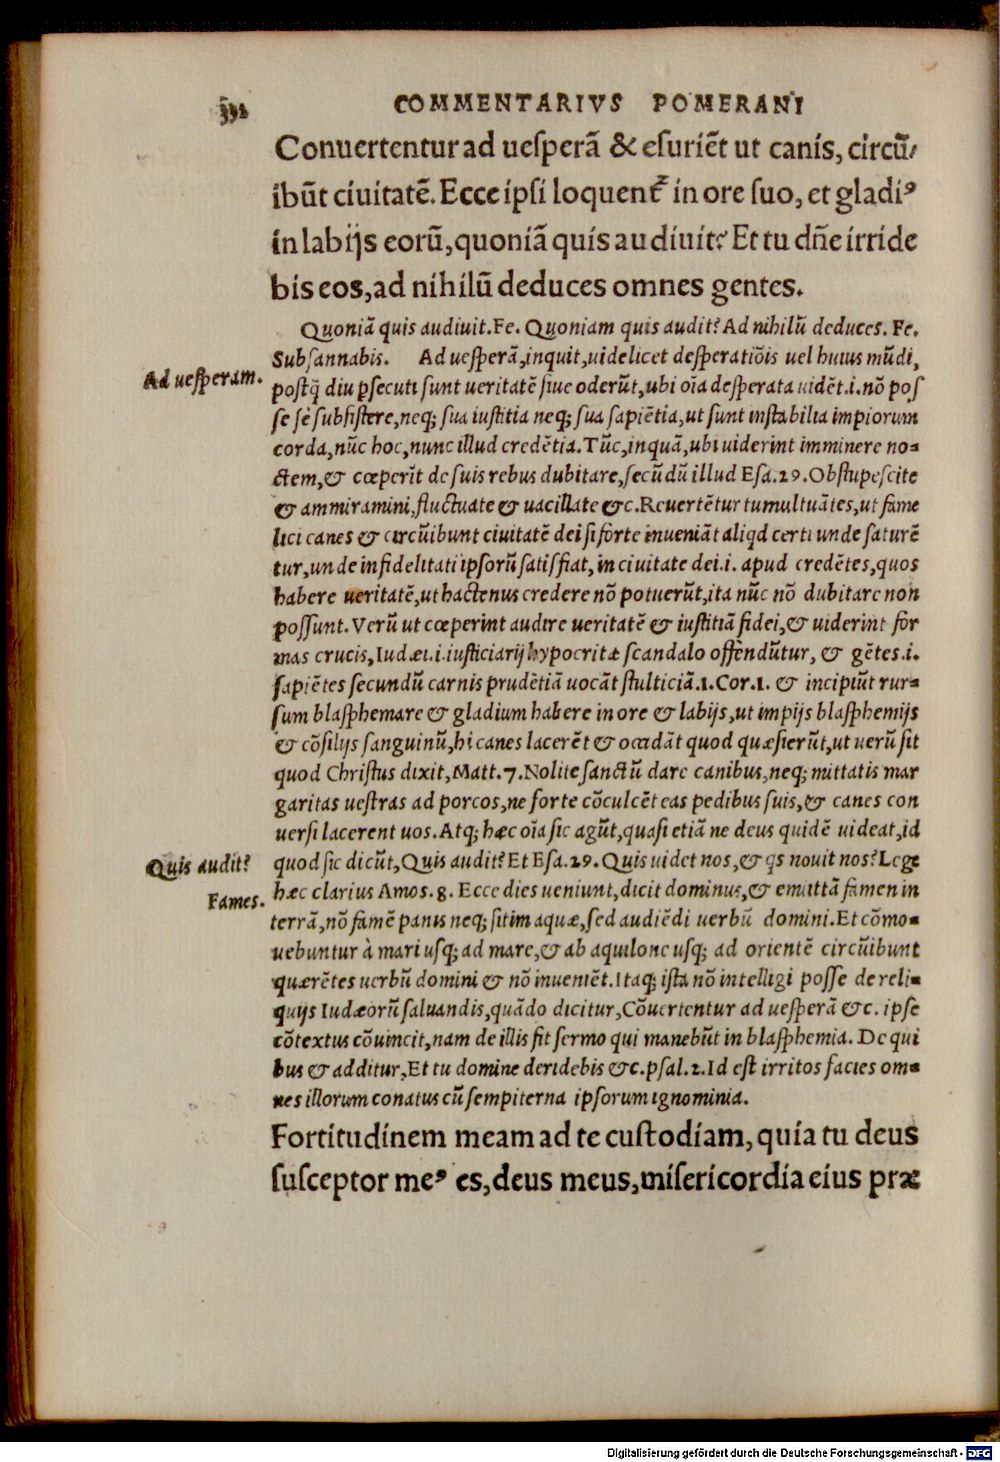 332
COMMENTARIVS POMERANI
Conuertentur ad ueſperã & eſuriẽt ut canis, circũ/
ibũt ciuitatẽ. Ecce ipſi loquent᷑ in ore ſuo, et gladiꝰ
in labijs eorũ, quoniã quis audiuit? Et tu dñe irride
bis eos, ad nihilũ deduces omnes gentes.
Quoniã quis audiuit. Fe. Quoniam quis audit? Ad nihilũ deduces. Fe.
Subſannabis. Ad ueſperã, inquit, uidelicet deſperatiõis uel huius mũdi,
Ad ueſperam.
poſtq̃ diu ꝑſecuti ſunt ueritatẽ ſiue oderũt, ubi oĩa deſperata uidẽt .i. nõ poſ
ſe ſe ſubſiſtere, neq; ſua iuſtitia neq; ſua ſapiẽtia, ut ſunt inſtabilia impiorum
corda, nũc hoc, nunc illud credẽtia. Tũc, inquã, ubi uiderint imminere no-
ctem, & cœperĩt de ſuis rebus dubitare, ſecũdũ illud Eſa. 29. Obſtupeſcite
& ammiramini, fluctuate & uacillate &c. Reuertẽtur tumultuãtes, ut fame
lici canes & circũibunt ciuitatẽ dei ſi forte inueniãt aliqd certi unde ſaturẽ
tur, unde infidelitati ipſorũ ſatiſfiat, in ciuitate dei .i. apud credẽtes, quos
habere ueritatẽ, ut hactenus credere nõ potuerũt, ita nũc nõ dubitare non
poſſunt. Verũ ut cœperint audire ueritatẽ & iuſtitiã fidei, & uiderint for
mas crucis, Iudæi .i. iuſticiarij hypocritæ ſcandalo offendũtur, & gẽtes .i.
ſapiẽtes ſecundũ carnis prudẽtiã uocãt ſtulticiã. 1. Cor. 1. & incipiũt rur-
ſum blaſphemare & gladium habere in ore & labijs, ut impijs blaſphemijs
& cõſilijs ſanguinũ, hi canes lacerẽt & occidãt quod quæſierũt, ut uerũ ſit
quod Chriſtus dixit, Matt. 7. Nolite ſanctũ dare canibus, neq; mittatis mar
garitas ueſtras ad porcos, ne forte cõculcẽt eas pedibus ſuis, & canes con
uerſi lacerent uos. Atq; hæc oĩa ſic agũt, quaſi etiã ne deus quidẽ uideat, id
Quis audit?
quod ſic dicũt, Quis audit? Et Eſa. 29. Quis uidet nos, & qs nouit nos? Lege
Fames.
hæc clarius Amos. 8. Ecce dies ueniunt, dicit dominus, & emittã famen in
terrã, nõ famẽ panis neq; ſitim aquæ, ſed audiẽdi uerbũ domini. Et cõmo-
uebuntur à mari uſq; ad mare, & ab aquilone uſq; ad orientẽ circũibunt
quærẽtes uerbũ domini & nõ inuenĩẽt. Itaq; iſta nõ intelligi poſſe de reli-
quijs Iudæorũ ſaluandis, quãdo dicitur, Cõuertentur ad ueſperã &c. ipſe
cõtextus cõuincit, nam de illis fit ſermo qui manebũt in blaſphemia. De qui
bus & additur, Et tu domine deridebis &c. pſal. 2. Id eſt irritos facies om-
nes illorum conatus cũ ſempiterna ipſorum ignominia.
Fortitudinem meam ad te cuſtodiam, quia tu deus
ſuſceptor meꝰ es, deus meus, miſericordia eius præ
Digitalisierung gefördert durch die Deutsche Forschungsgemeinschaft - DFG